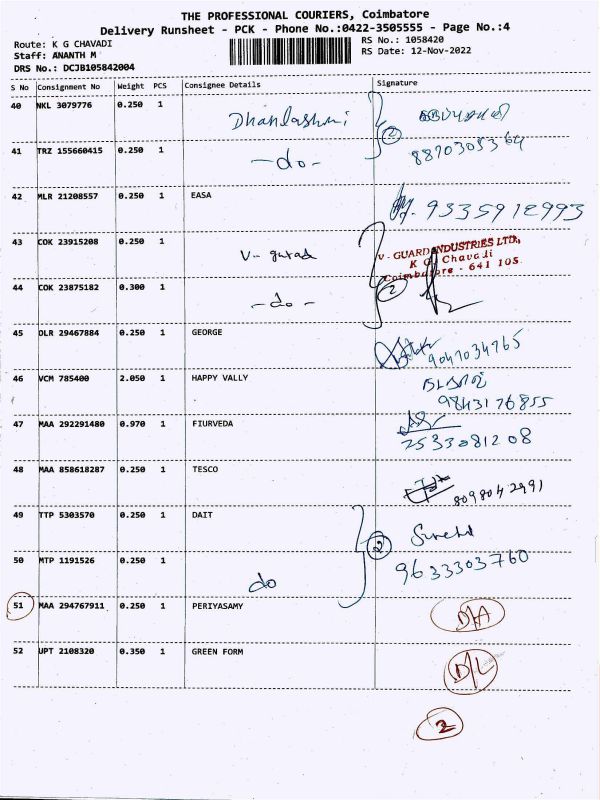 THE PROFESSIONAL COURIERS, Coimbatore
Delivery Runsheet - PCK - Phone No.:0422-3505555 - Page No.:4
Route: K G CHAVADI
RS No.: 1058420
Staff: ANANTH M
RS Date: 12-Nov-2022
DRS No.: DCJB105842004
S No Consignment No Weight PCS Consignee Details Signature
40 NKL 3079776 0.250 1
41 TRZ 155660415 0.250 1 -do-
42 MLR 21208557 0.250 1 EASA 9335912993
43 COK 23915208 0.250 1 V- gurad
V - GUARD INDUSTRIES LTD,
K G Chavadi
Coimbatore - 641 105.
44 COK 23875182 0.300 1 -do- 2
45 DLR 29467884 0.250 1 GEORGE 9047034765
46 VCM 785400 2.050 1 HAPPY VALLY
9843176855
47 MAA 292291480 0.970 1 FIURVEDA
2533081208
48 MAA 858618287 0.250 1 TESCO
8098042991
49 TTP 5303570 0.250 1 DAIT 2
50 MTP 1191526 0.250 1 do 9633303760
51 MAA 294767911 0.250 1 PERIYASAMY
52 UPT 2108320 0.350 1 GREEN FORM D/L
2